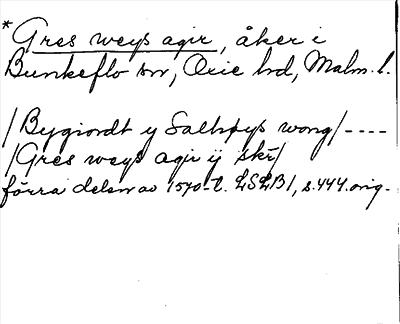 *Gres weys agir, åker i
Bunkeflo sn, Oxie hd, Malm. l.
/Bygiordt y Salhøys wong/----
/Gres weys agir ÿ skr/
förra delen av 1570-t. LSLB1, s.444.orig.